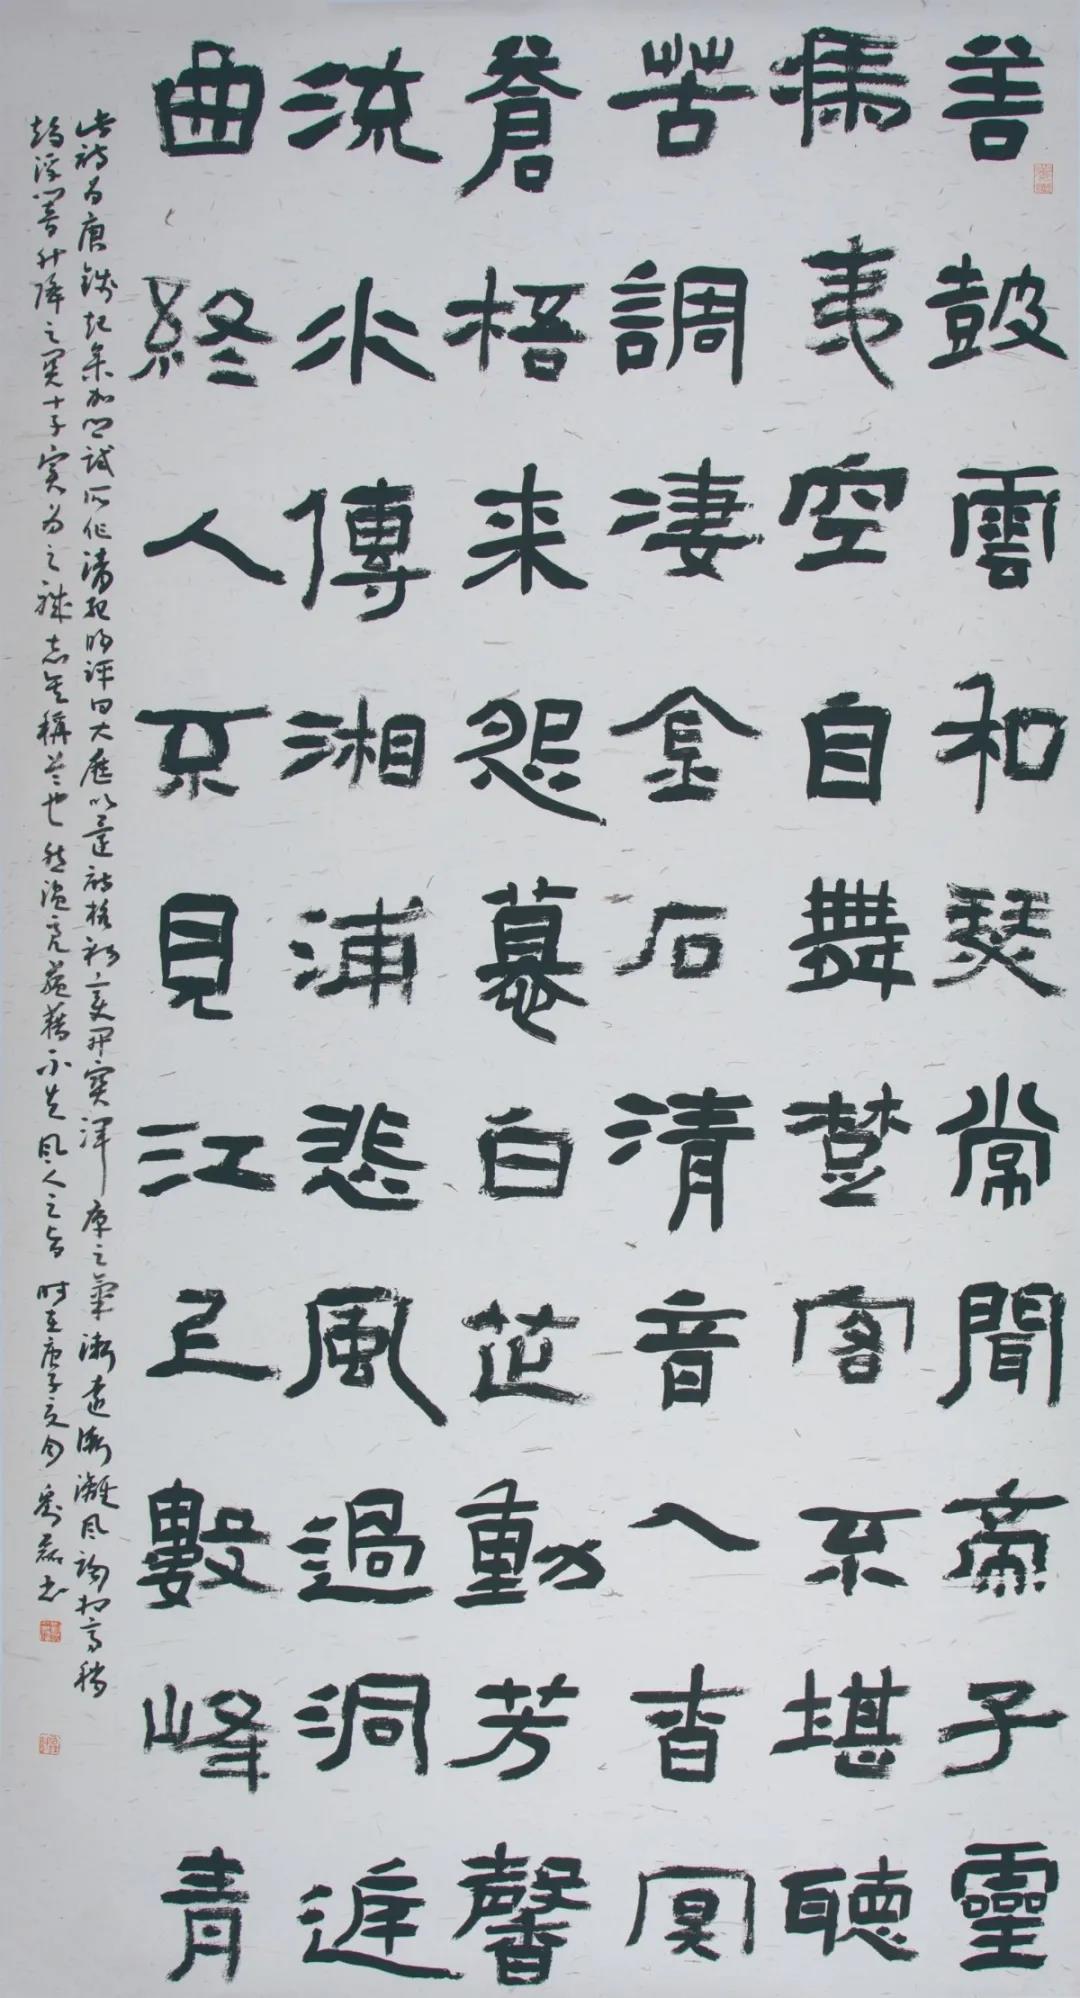 善鼓雲和瑟常聞帝子靈
馮夷空自舞楚客不堪聽
苦調淒金石清音入杳冥
蒼梧来怨慕白芷動芳馨
流水傳湘浦悲風過洞庭
曲終人不見江上數峰青
此詩為唐錢起參加省試所作清紀昀評曰大歷以還詩格初變開寶渾厚之氣漸遠漸漓風調相高稍
趨浮響升降之關十子實為之職志其稱首也然溫秀蘊藉不失風人之旨時在庚子夏月劉磊書